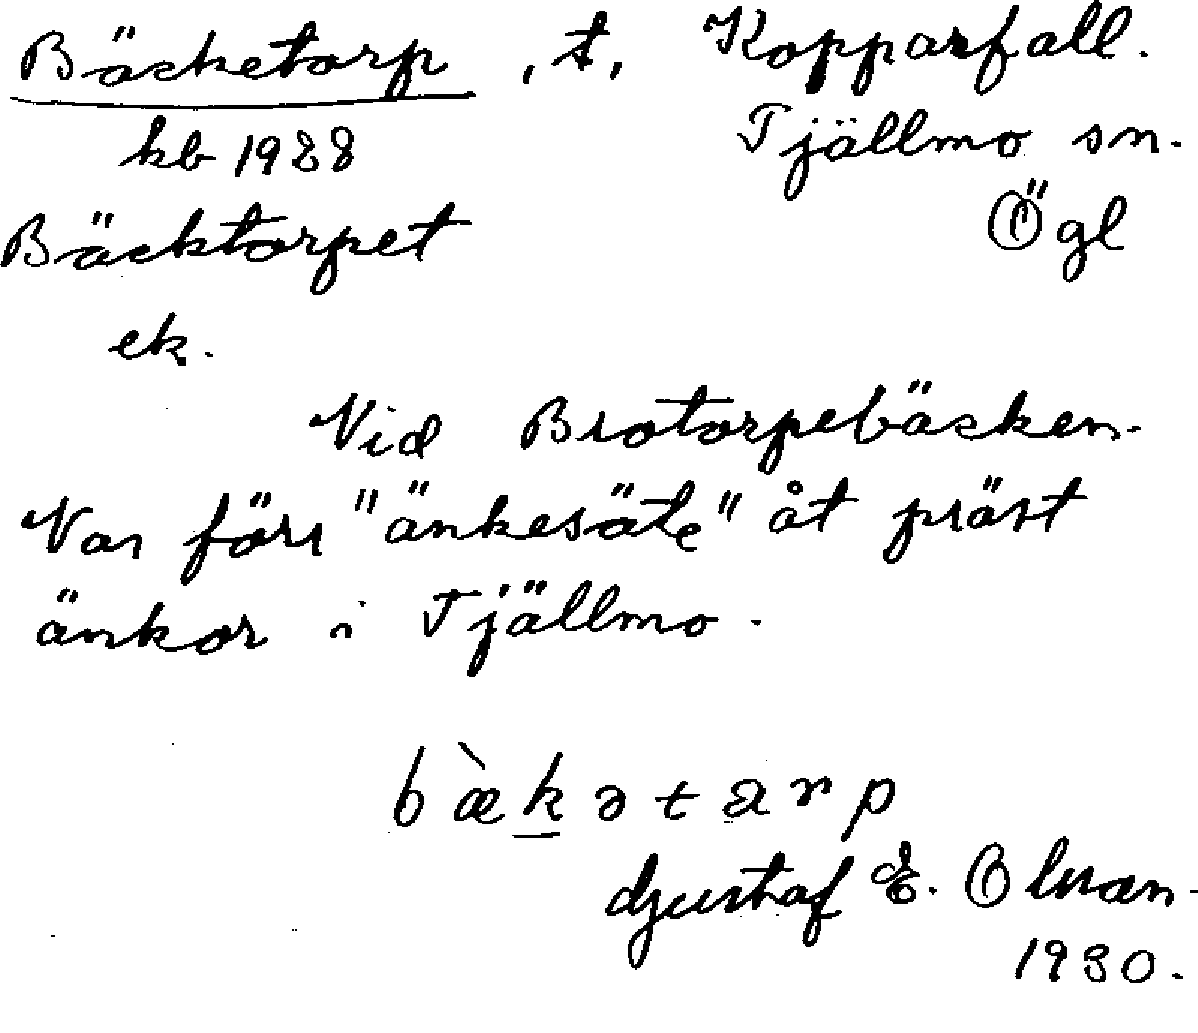 Bäcketorp, t, Kopparfall.
kb 1928 Tjällmo sn.
Bäcktorpet Ögl
ek.
Vid Brotorpebäcken.
Var förr "änkesäte" åt präst
änkor i Tjällmo.
bæ̀kətarp
Gustaf E. Olson.
1930.